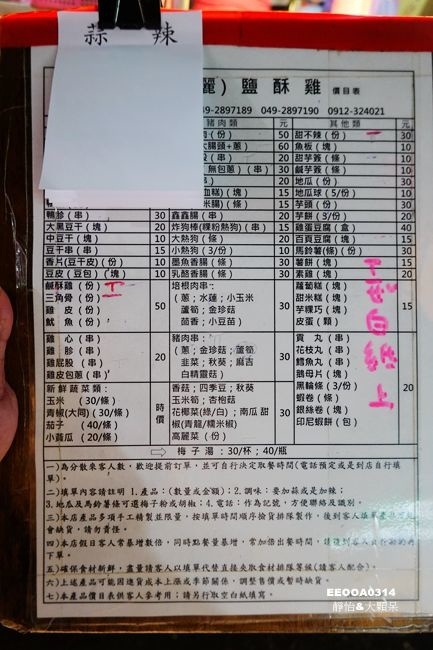 蒜 辣
麗) 鹽酥雞 價目表
49-2897189 049-2897190 0912-324021
豬肉類 元 其他類 元
(份) 50 甜不辣(份) 30
大腸頭+蔥 60 魚板(塊) 10
(串) 20 甜芋簽(條) 10
無包蔥)(串) 30 鹹芋簽(條) 10
(串) 20 地瓜(份) 30
血糕(塊) 15 地瓜球(5/份) 10
米腸(條) 15 芋頭(份) 30
鴨胗(串) 30 鑫鑫腸(串) 20 芋餅(3/份) 20
大黑豆干(塊) 20 炸狗棒(粿粉熱狗)(串) 15 雞蛋豆腐(盒) 40
中豆干(塊) 10 大熱狗(條) 20 百頁豆腐(塊) 15
豆干串(串) 15 小熱狗(3/份) 10 馬鈴薯(條)(份) 30
香片(豆干皮)(份) 30 墨魚香腸(條) 30 薯餅(塊) 15
豆皮(豆包)(塊) 10 乳酪香腸(條) 30 素雞(塊) 20
鹹酥雞(份)
三角骨(份)
雞皮(份)
魷魚(份)
50
培根肉串:
(蔥;水蓮;小玉米
蘆筍;金珍菇
茴香;小豆苗)
30
蘿蔔糕(塊)
甜米糕(塊)
芋粿巧(塊)
皮蛋(顆)
15
雞心(串)
雞胗(串)
雞屁股(串)
雞皮包蔥(串)
20
豬肉串:
(蔥;金珍菇;蘆筍
韭菜;秋葵;麻吉
白精靈菇)
30
新鮮蔬菜類:
玉米 (30/條)
青椒(大同)(30/條)
茄子 (40/條)
小黃瓜 (20/條)
時價
香菇;四季豆;秋葵
玉米筍;杏枹菇
花椰菜(綠/白);南瓜甜
椒(青龍/糯米椒)
高麗菜(份)
30
貢丸(串)
花枝丸(串)
鱈魚丸(串)
鵝母片(塊)
黑輪條(3/份)
蝦卷(條)
銀絲卷(條)
印尼蝦餅(包)
20
下 白紙上
梅子湯:30/杯;40/瓶
一)為分散來客人數,歡迎提前訂單,並可自行決定取餐時間(電話預定或是到店自行填單)。
二)填單內容請註明 1.產品:(數量或金額);2.調味:要加蒜或是加辣;
3.地瓜及馬鈴薯條可選梅子粉或胡椒;4.電話;作為記號,方便聯絡及識別。
三)本店產品多項手工精製並限量,按填單時間順序撿貨排隊製作,後到客人填單產品
會缺貨,請勿責怪。
四)本店假日客人常暴增數倍,同時點餐量暴增,常加倍出餐時間,請後到客人
下單。
五)確保食材新鮮,盡量請客人以填單代替直接夾取食材排隊等候(請客人配合)。
六)上述產品可能因進貨成本上漲或季節關係,調整售價或暫時缺貨。
七)本產品價目表供客人參考用;請另行取空白紙填寫。
EEOOA0314
靜怡&大顆呆